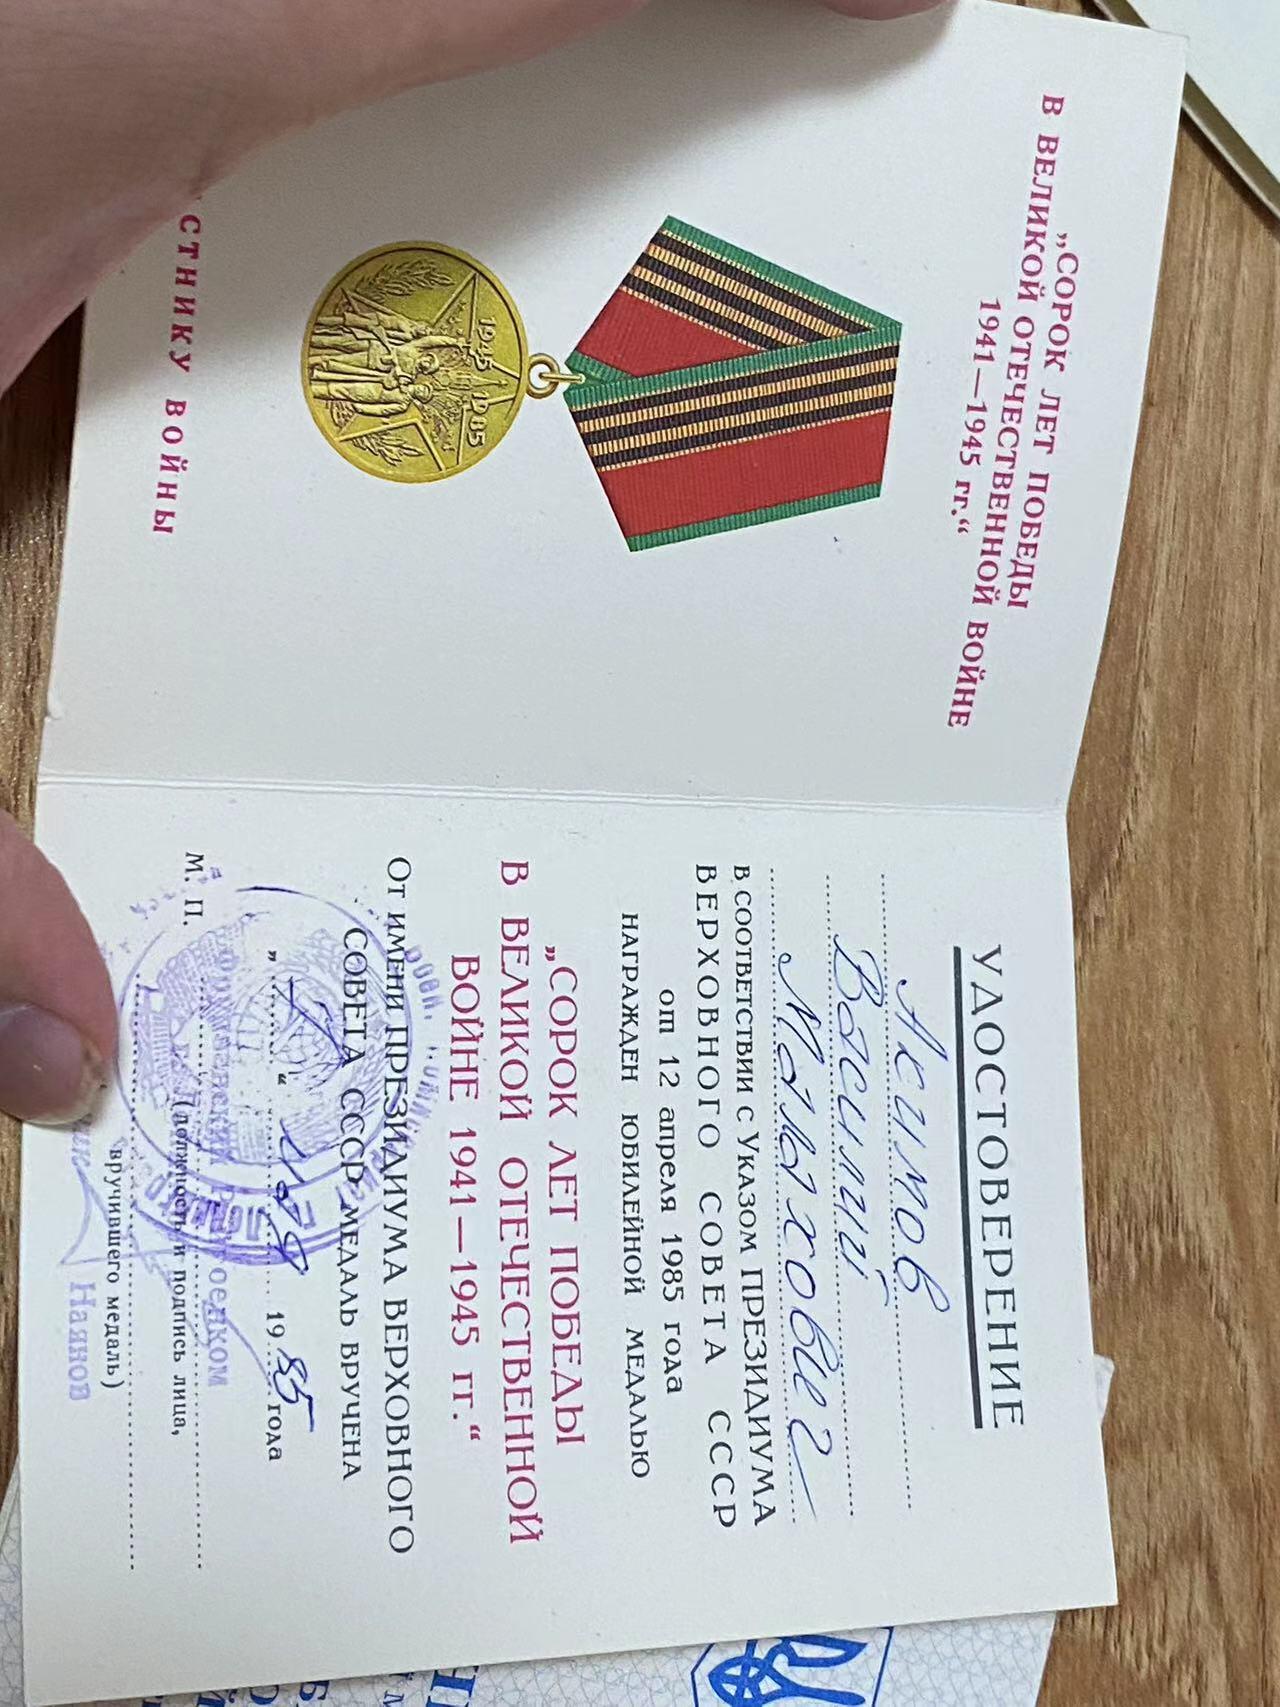 „СОРОК ЛЕТ ПОБЕДЫ
В ВЕЛИКОЙ ОТЕЧЕСТВЕННОЙ ВОЙНЕ
1941—1945 гг.“
1945
1985
СТНИКУ ВОЙНЫ
УДОСТОВЕРЕНИЕ
Акимов
Василий
Малахович
в соответствии с Указом ПРЕЗИДИУМА
ВЕРХОВНОГО СОВЕТА СССР
от 12 апреля 1985 года
НАГРАЖДЕН ЮБИЛЕЙНОЙ МЕДАЛЬЮ
„СОРОК ЛЕТ ПОБЕДЫ
В ВЕЛИКОЙ ОТЕЧЕСТВЕННОЙ
ВОЙНЕ 1941—1945 гг.“
От имени ПРЕЗИДИУМА ВЕРХОВНОГО
СОВЕТА СССР МЕДАЛЬ ВРУЧЕНА
„ “ 1985 года
М. П.
(должность и подпись лица,
вручившего медаль)
Наянов